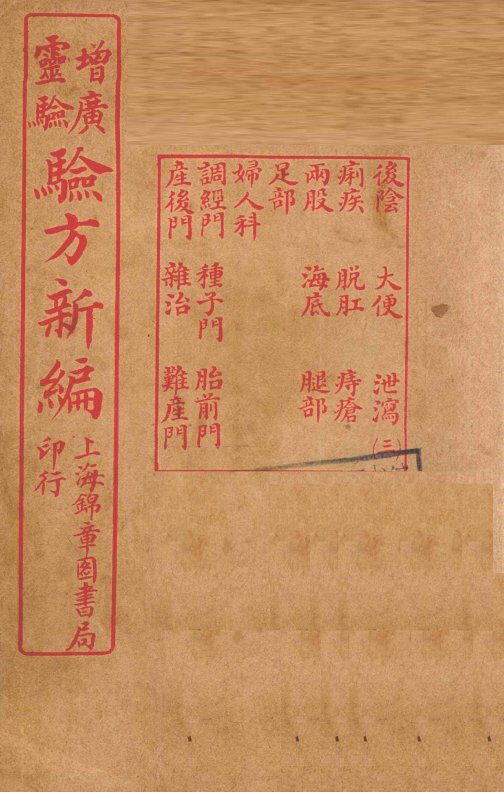 增廣
靈驗
驗方新編
上海錦章圖書局
印行
後陰 大便 泄瀉(三)
痢疾 脱肛 痔瘡
兩股 海底 腿部
足部
婦人科
調經門 種子門 胎前門
産後門 雜治 難産門